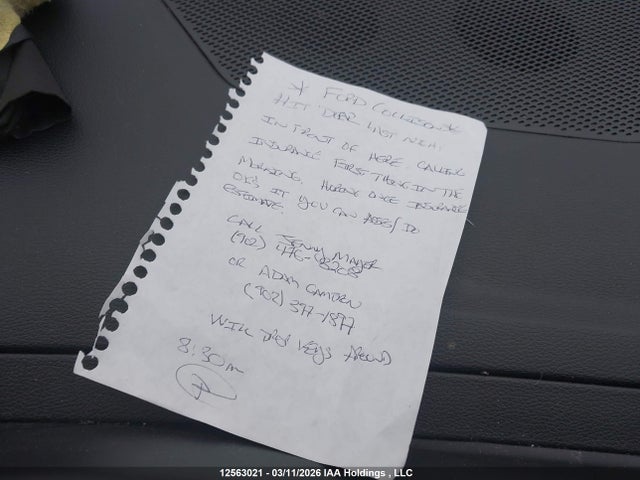 * FORD COLLISION *
HIT DEER LAST NIGHT
IN FRONT OF HERE. CALLING
INSURANCE FIRST THING IN THE
MORNING. HOPING ONCE INSURANCE
OK'S IT YOU CAN ASSESS/DO
ESTIMATE.
CALL JENNY MAYOR
(902) 476-
OR ADAM
(902) 377-1877
WILL DROP KEYS AROUND
8:30
12563021 - 03/11/2026 IAA Holdings, LLC